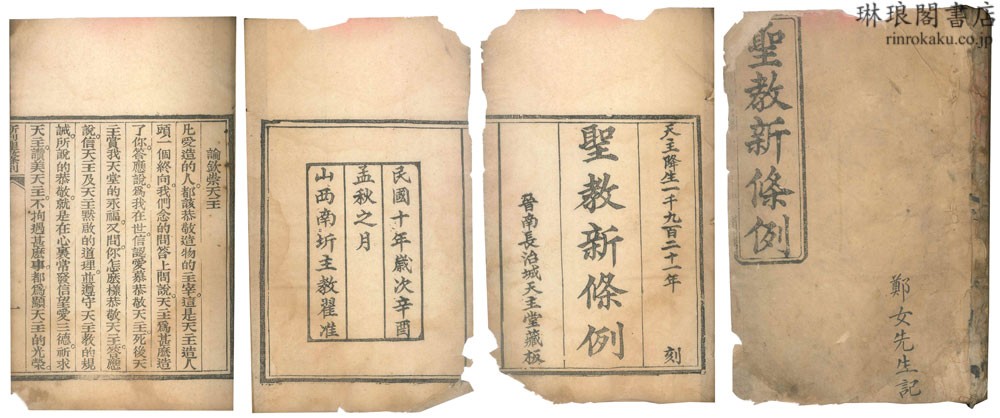 琳琅閣書店
rinrokaku.co.jp
聖教新條例
鄭女先生記
天主降生一千九百二十一年 刻
聖教新條例
晉南長治城天主堂藏板
民國十年歲次辛酉
孟秋之月
山西南圻主教翟准
論欽崇天主
凡受造的人。都該恭敬造物的主宰。這是天主造人
頭一個終向。我們念的問答上問說。天主爲甚麼造
了你。答應說。爲我在世。信認愛慕恭敬天主。死後天
主賞我天堂的永福。又問你怎麼樣恭敬天主。答應
說。信天主及天主默啟的道理。並遵守天主教的規
誡。所說的恭敬。就是在心裏常發信望愛三德。祈求
天主。讚美天主。不拘遇甚麼事。都爲顯天主的光榮。
一